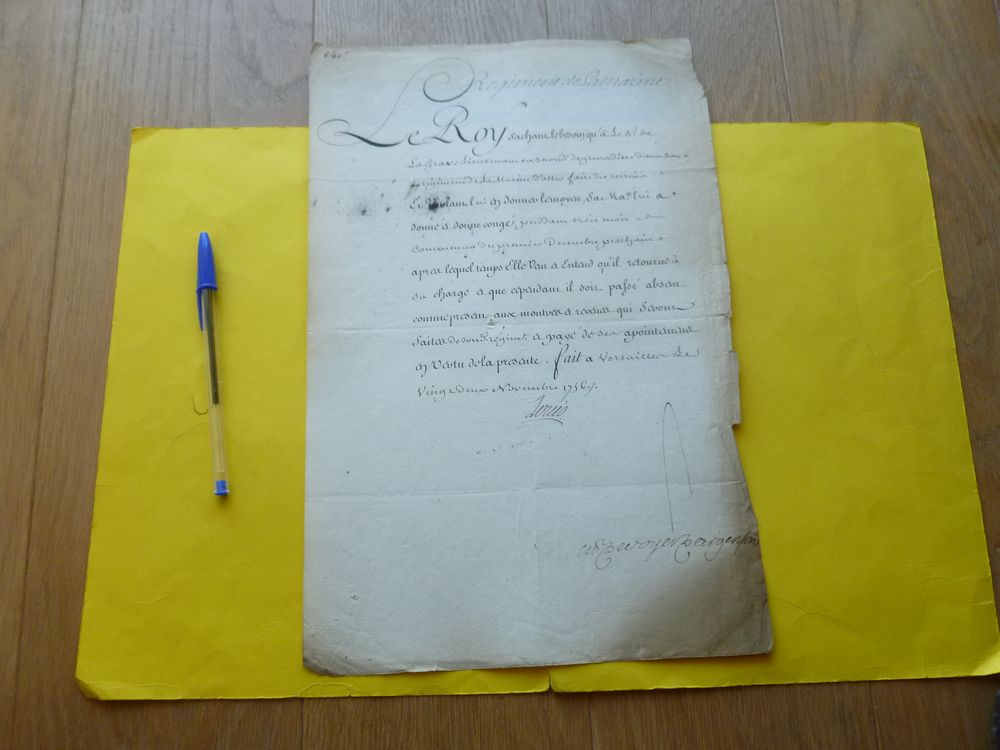 Regiment de Lamarine
Le Roy sachant le besoin qu'a Le Sr. de
La Grave Lieutenant en second de grenadiers dans son
regiment de La Marine d'aller faire des recrües
Et Voulant lui en donner le moyen, Sa Maté. lui a
donné et donne congé pendant trois mois a
Commencer du premier Decembre prochain
apres lequel temps Elle Veut et Entend qu'il retourne à
sa charge et que cependant il soit passé absent
comme present aux montres et reveües qui Seront
faites de son dt. régiment et payé de ses apointemens
en Vertu de la presente. fait a Versailles Le
Vingt deux Novembre 1756./.
Louis
M. P. de voyer d'argenson